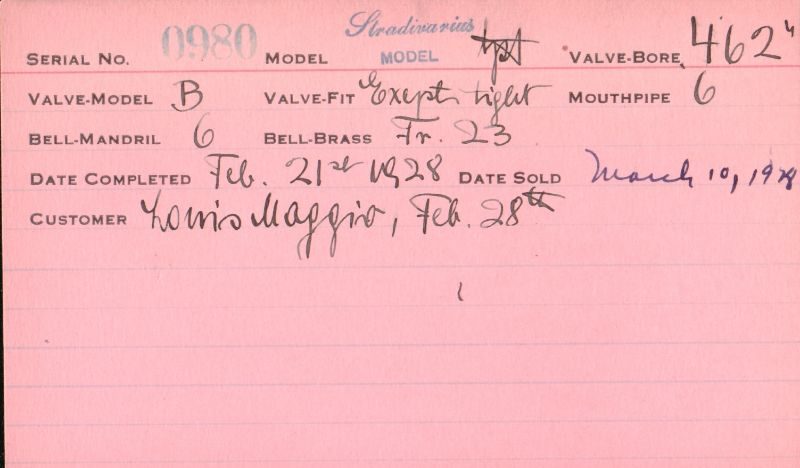 SERIAL NO. 0980 MODEL Stradivarius MODEL VALVE-BORE .462"
VALVE-MODEL B VALVE-FIT Exept. tight MOUTHPIPE 6
BELL-MANDRIL 6 BELL-BRASS Fr. 23
DATE COMPLETED Feb. 21st 1928 DATE SOLD March 10, 1928
CUSTOMER Louis Maggio, Feb. 28th